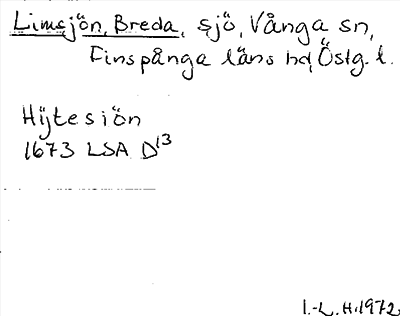 Limsjön, Breda, sjö, Vånga sn,
Finspånga läns hd, Östg. l.
Hijtesiön
1673 LSA D13
I.-L. H. 1972